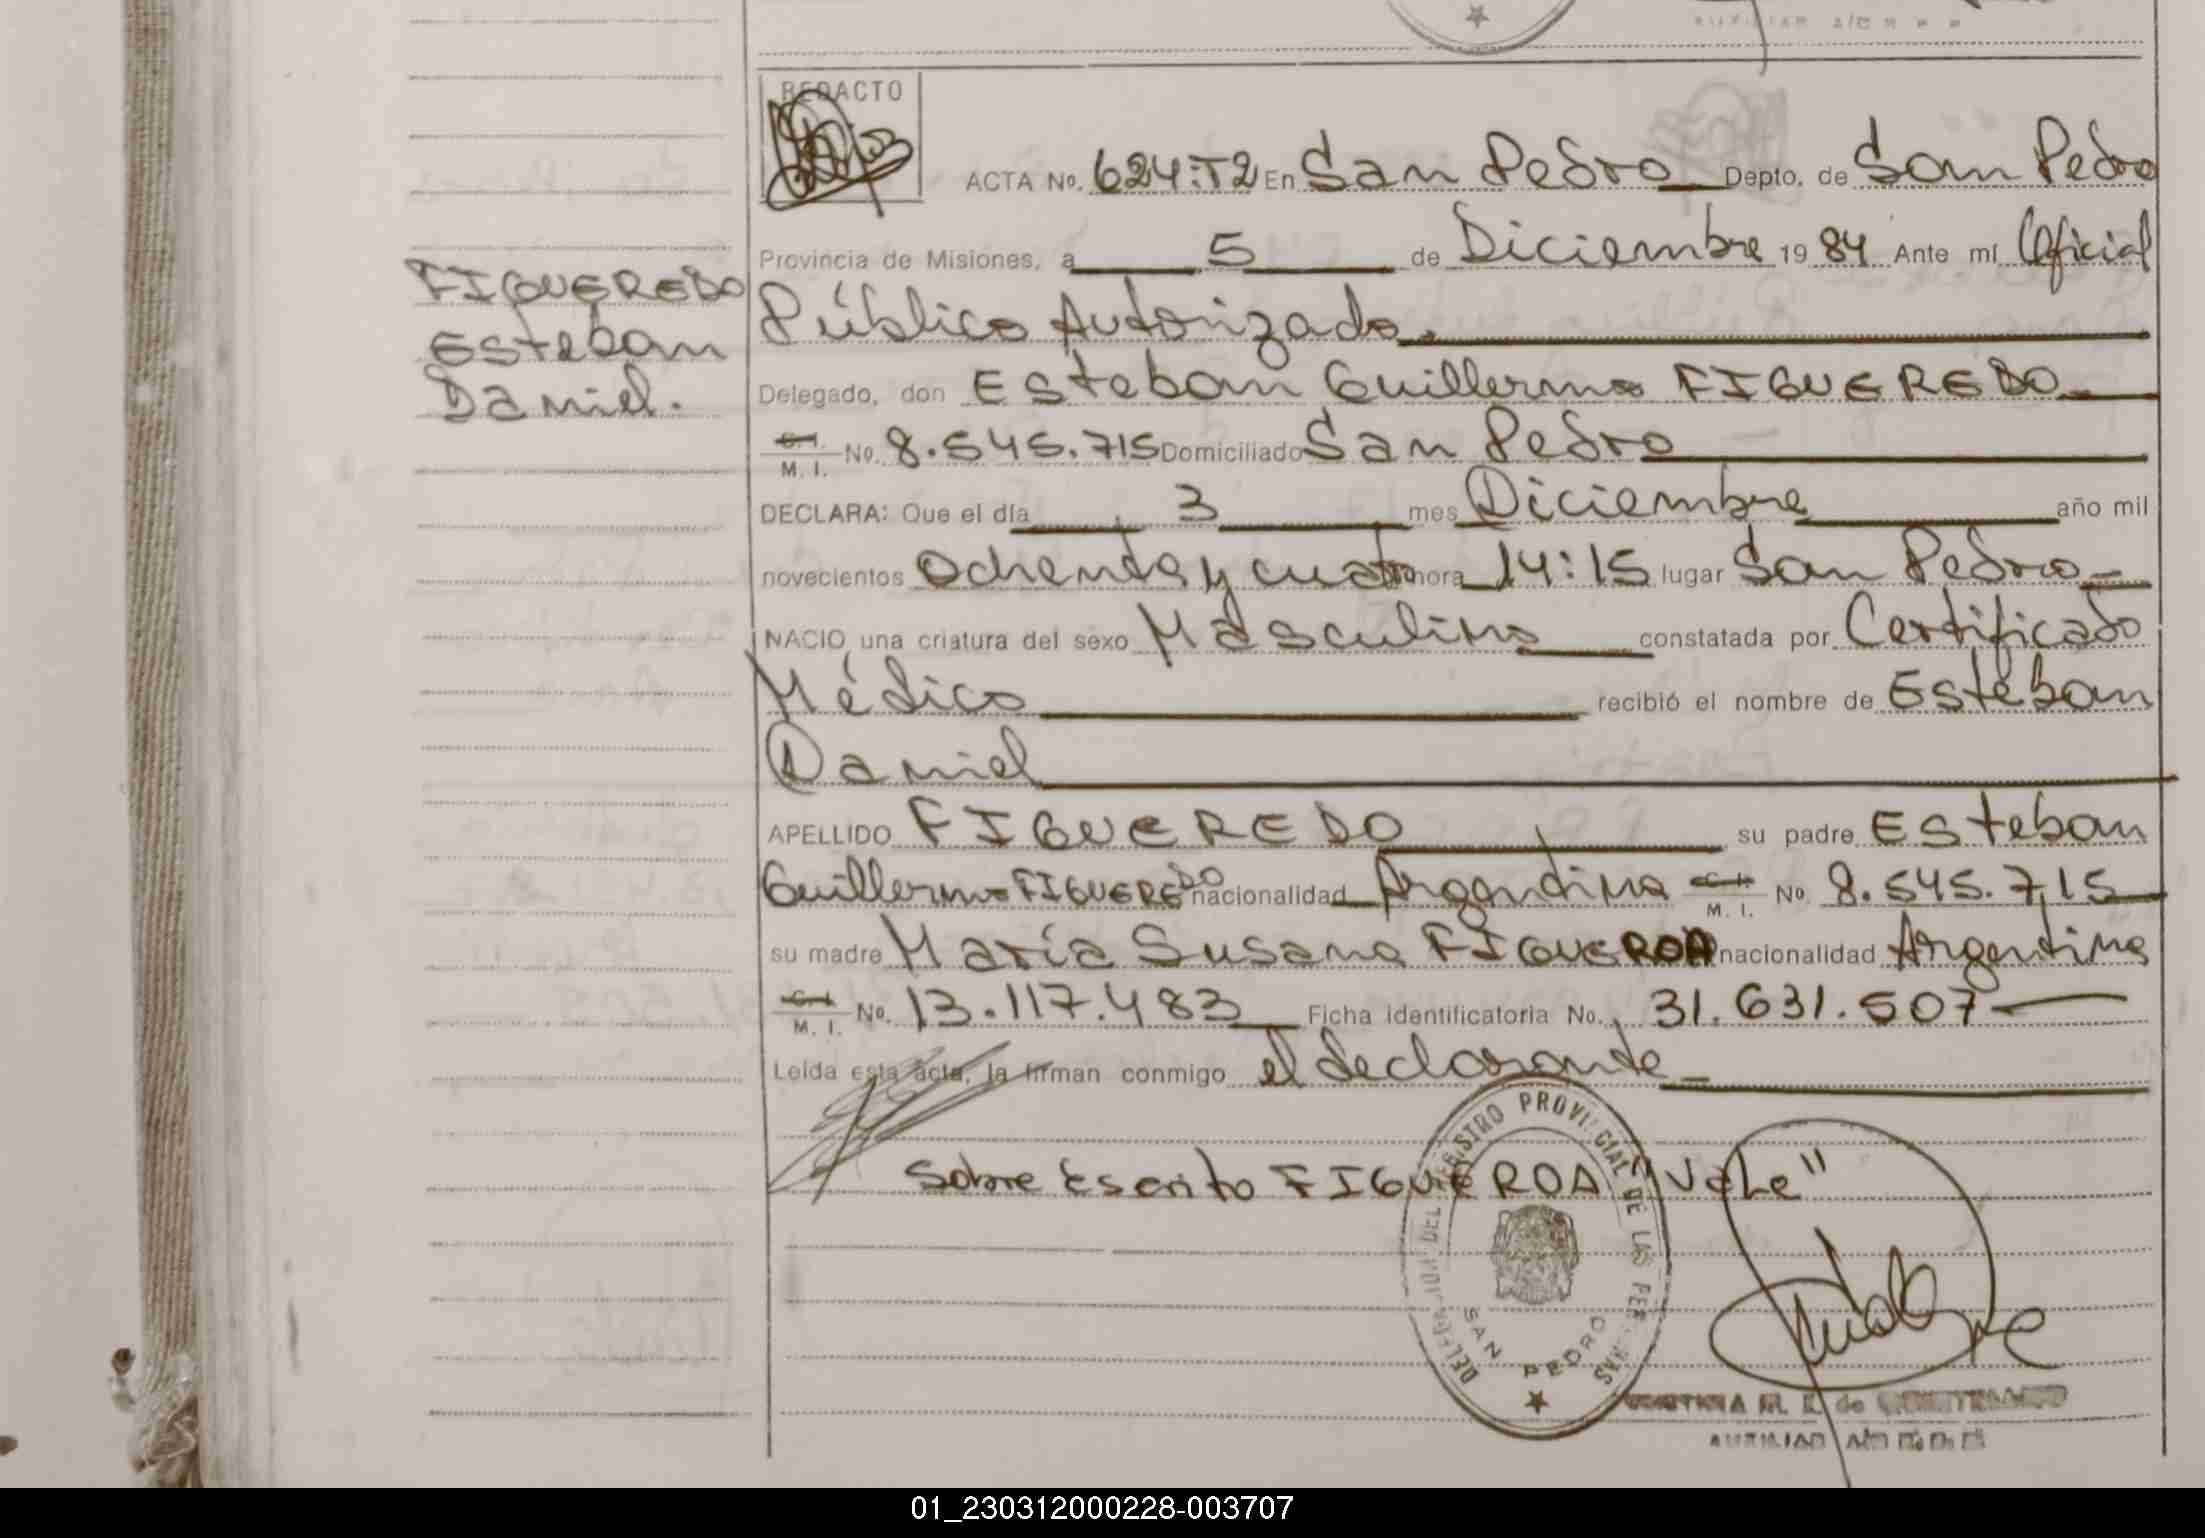 REDACTO
ACTA No. 624:T2 En San Pedro Depto. de San Pedro
Provincia de Misiones, a 5 de Diciembre 19 84 Ante mí Oficial
Público Autorizado.
Delegado, don Esteban Guillermo FIGUEREDO
C. I. M. I. No. 8.545.715 Domiciliado San Pedro
DECLARA: Que el día 3 mes Diciembre año mil
novecientos Ochenta y cuatro hora 14:15 lugar San Pedro
NACIO una criatura del sexo Masculino constatada por Certificado
Médico recibió el nombre de Esteban
Daniel
APELLIDO FIGUEREDO su padre Esteban
Guillermo FIGUEREDO nacionalidad Argentina C. I. M. I. No. 8.545.715
su madre María Susana FIGUEROA nacionalidad Argentina
C. I. M. I. No. 13.117.483 Ficha identificatoria No. 31.631.507
Leída esta acta, la firman conmigo el declarante
Sobre Escrito FIGUEROA "Vale"
FIGUEREDO
Esteban
Daniel.
DELEGACION DEL REGISTRO PROVINCIAL DE LAS PERSONAS
SAN PEDRO
AUXILIAR
01_230312000228-003707